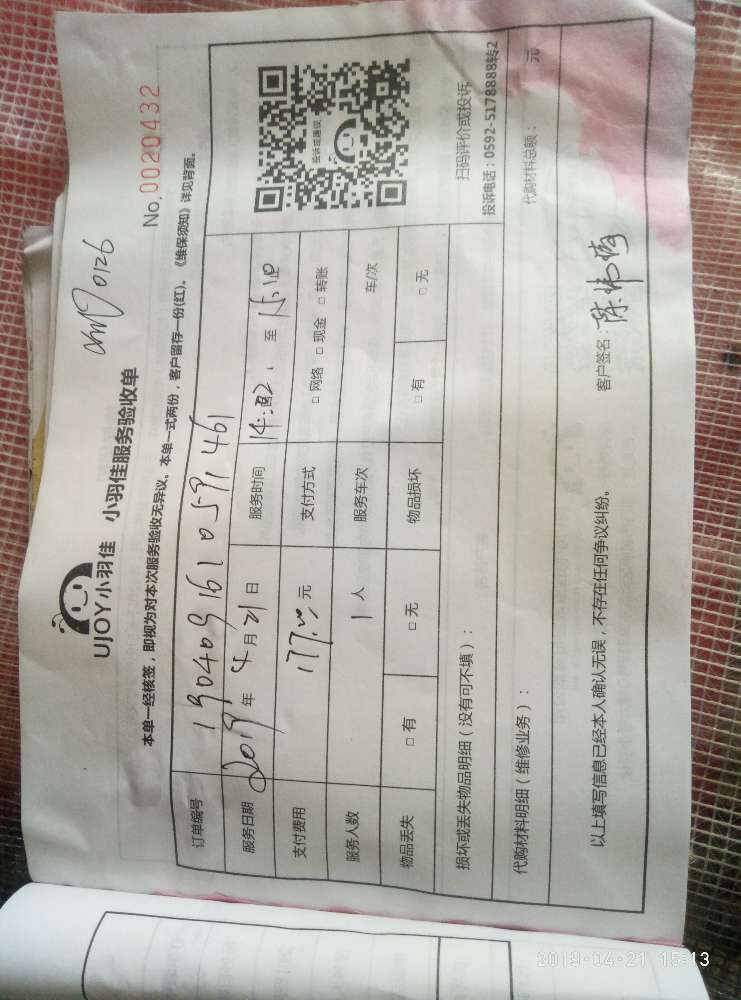 UJOY小羽佳 小羽佳服务验收单
0126
No.0020432
本单一经核签，即视为对本次服务验收无异议。本单一式两份，客户留存一份(红)。《维保须知》详见背面。
订单编号 1904091610591461
服务日期 2019年4月21日 服务时间 至 15:10
支付费用 元 支付方式 □ 网络 □ 现金 □ 转账
服务人数 1 人 服务车次 车/次
物品丢失 □ 有 □ 无 物品损坏 □ 有 □ 无
投诉或建议
扫码评价或投诉
投诉电话：0592-5178888转2
损坏或丢失物品明细（没有可不填）：
代购材料明细（维修业务）： 代购材料总额： 元
以上填写信息已经本人确认无误，不存在任何争议纠纷。
客户签名：
2019-04-21 15:13